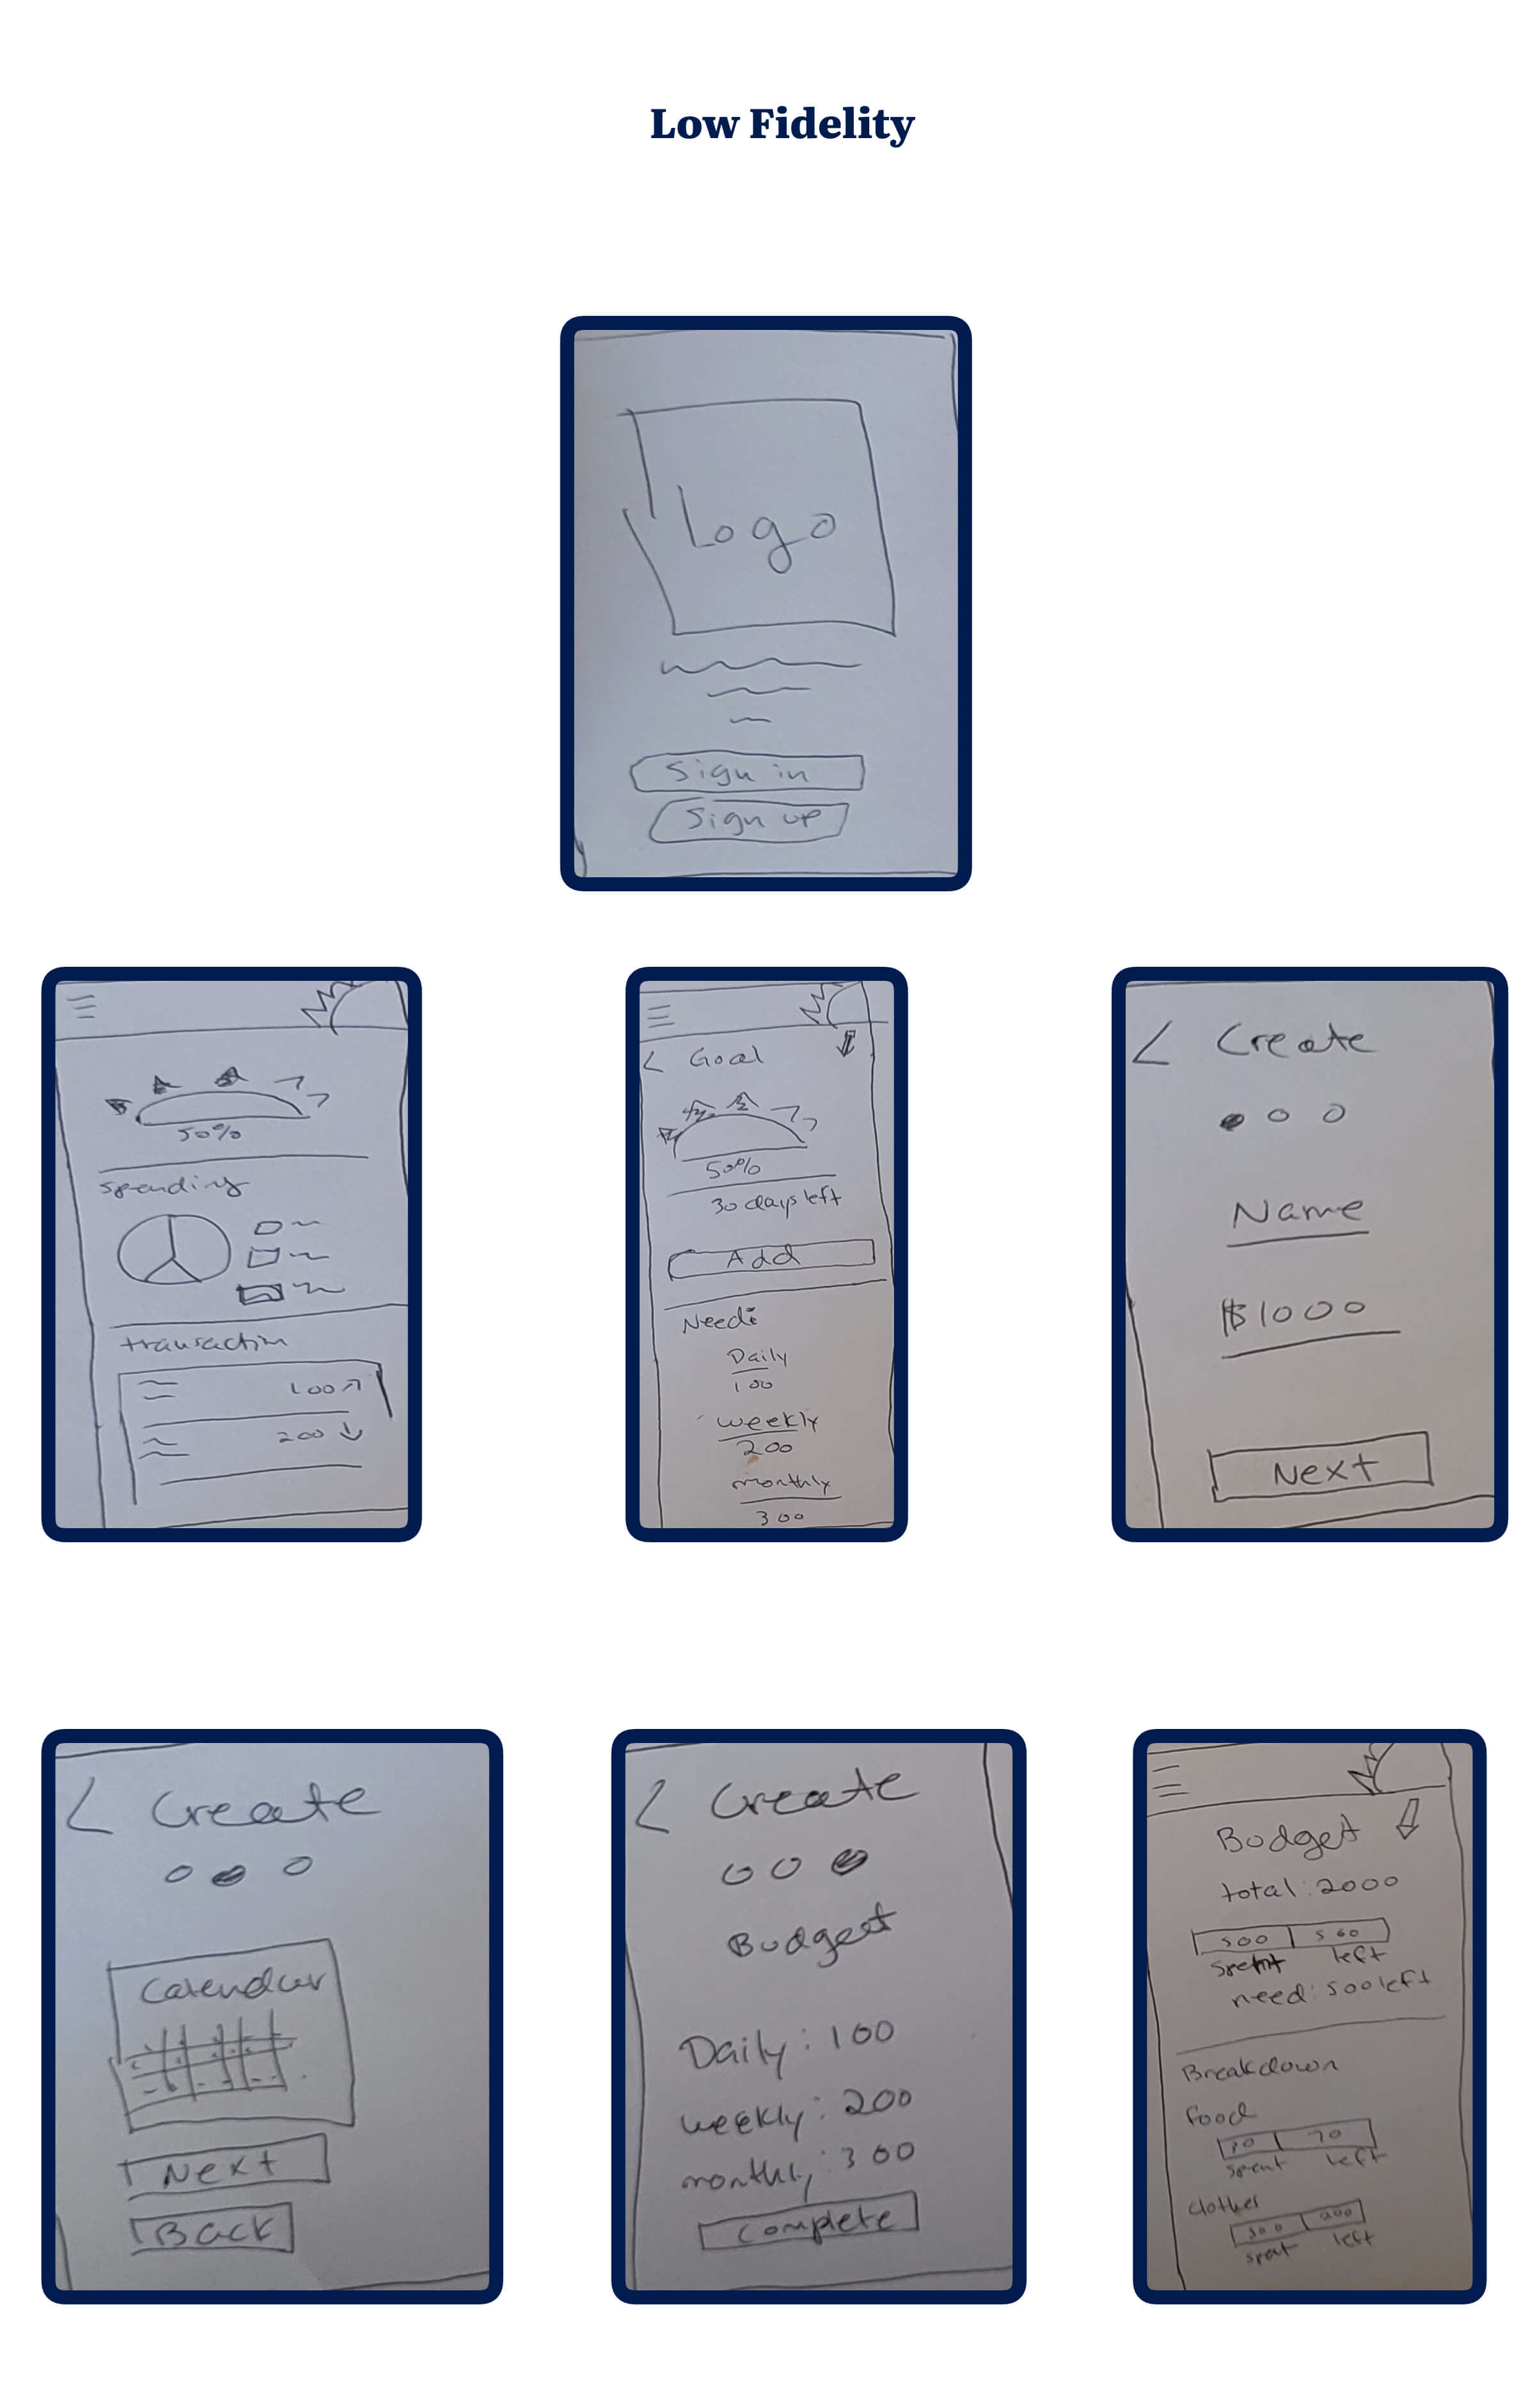 Low Fidelity
Logo
Sign in
Sign up
50%
spending
transactin
100
200
< Goal
50%
30 days left
Add
Need:
Daily
100
weekly
200
monthly
300
< Create
Name
$1000
Next
< Create
Calendar
Next
Back
< Create
Budget
Daily: 100
weekly: 200
monthly: 300
Complete
Budget
total: 2000
500 500
spent left
need: 500 left
Breakdown
food
70
spent left
clothes
300 200
spent left